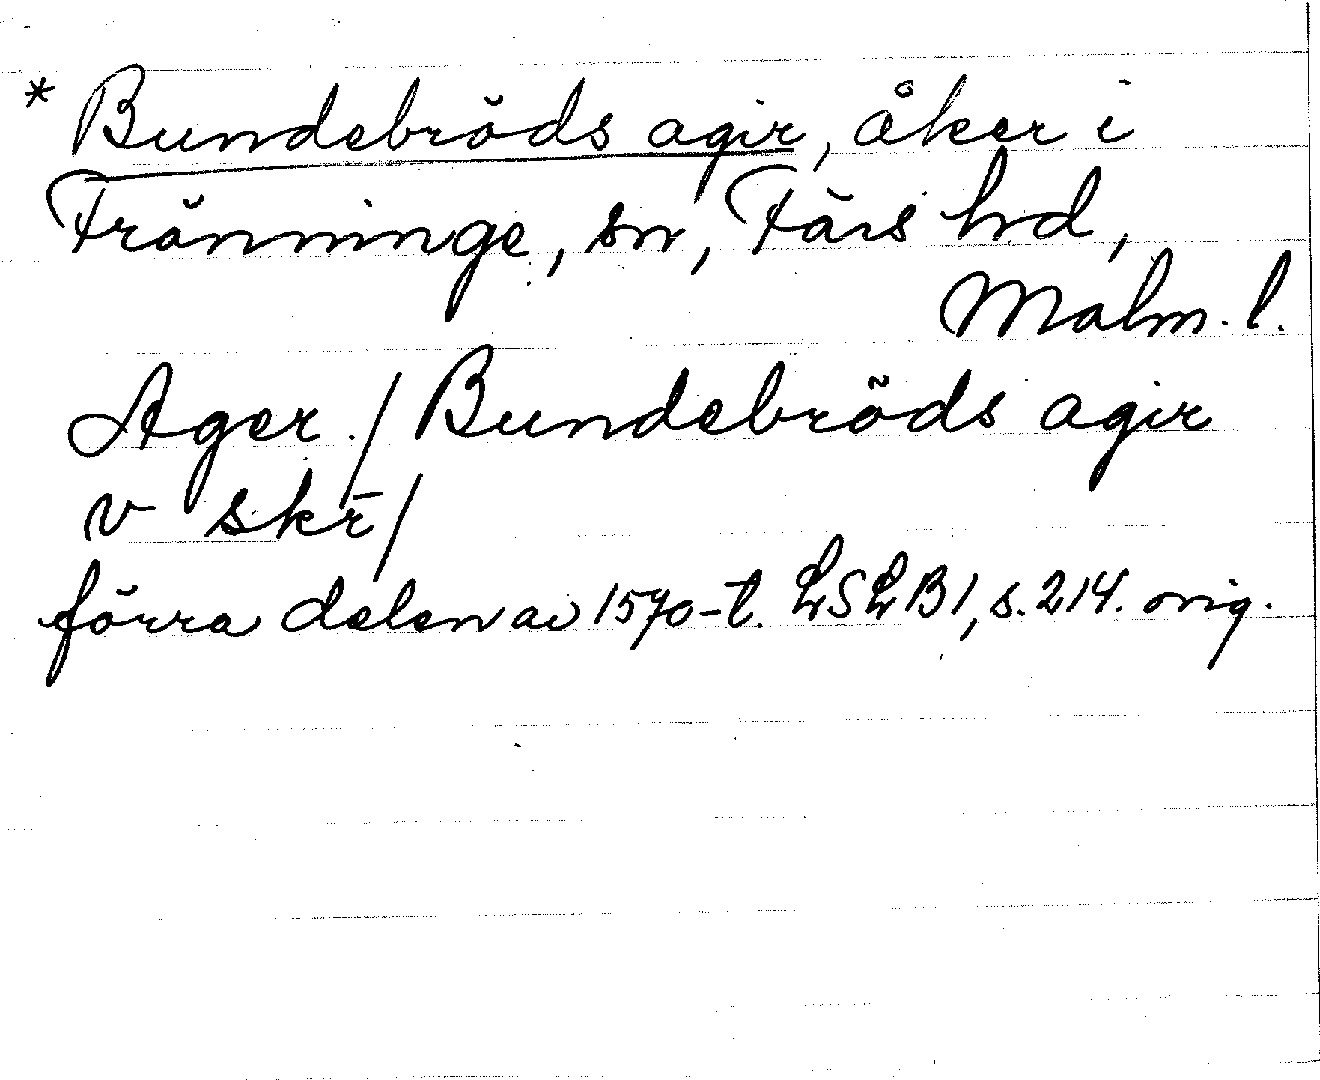 * Bundebröds agir, åker i
Fränninge, sn, Färs hd,
Malm. l.
Ager / Bundebröds agir
v skr̄ /
förra delen av 1570-t. LSLB1, s. 214. orig.